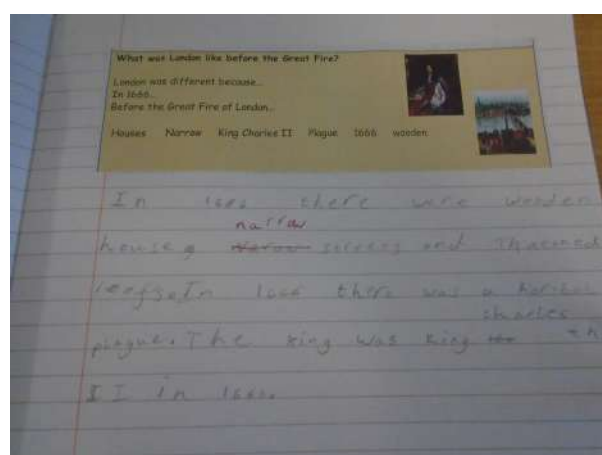 What was London like before the Great Fire?
London was different because...
In 1666...
Before the Great Fire of London...
Houses Narrow King Charles II Plague 1666 wooden
In 1666 there were wooden
narrow
house, streets and
In 1666 there was a
charles
plague. The king was king
II in 1666.